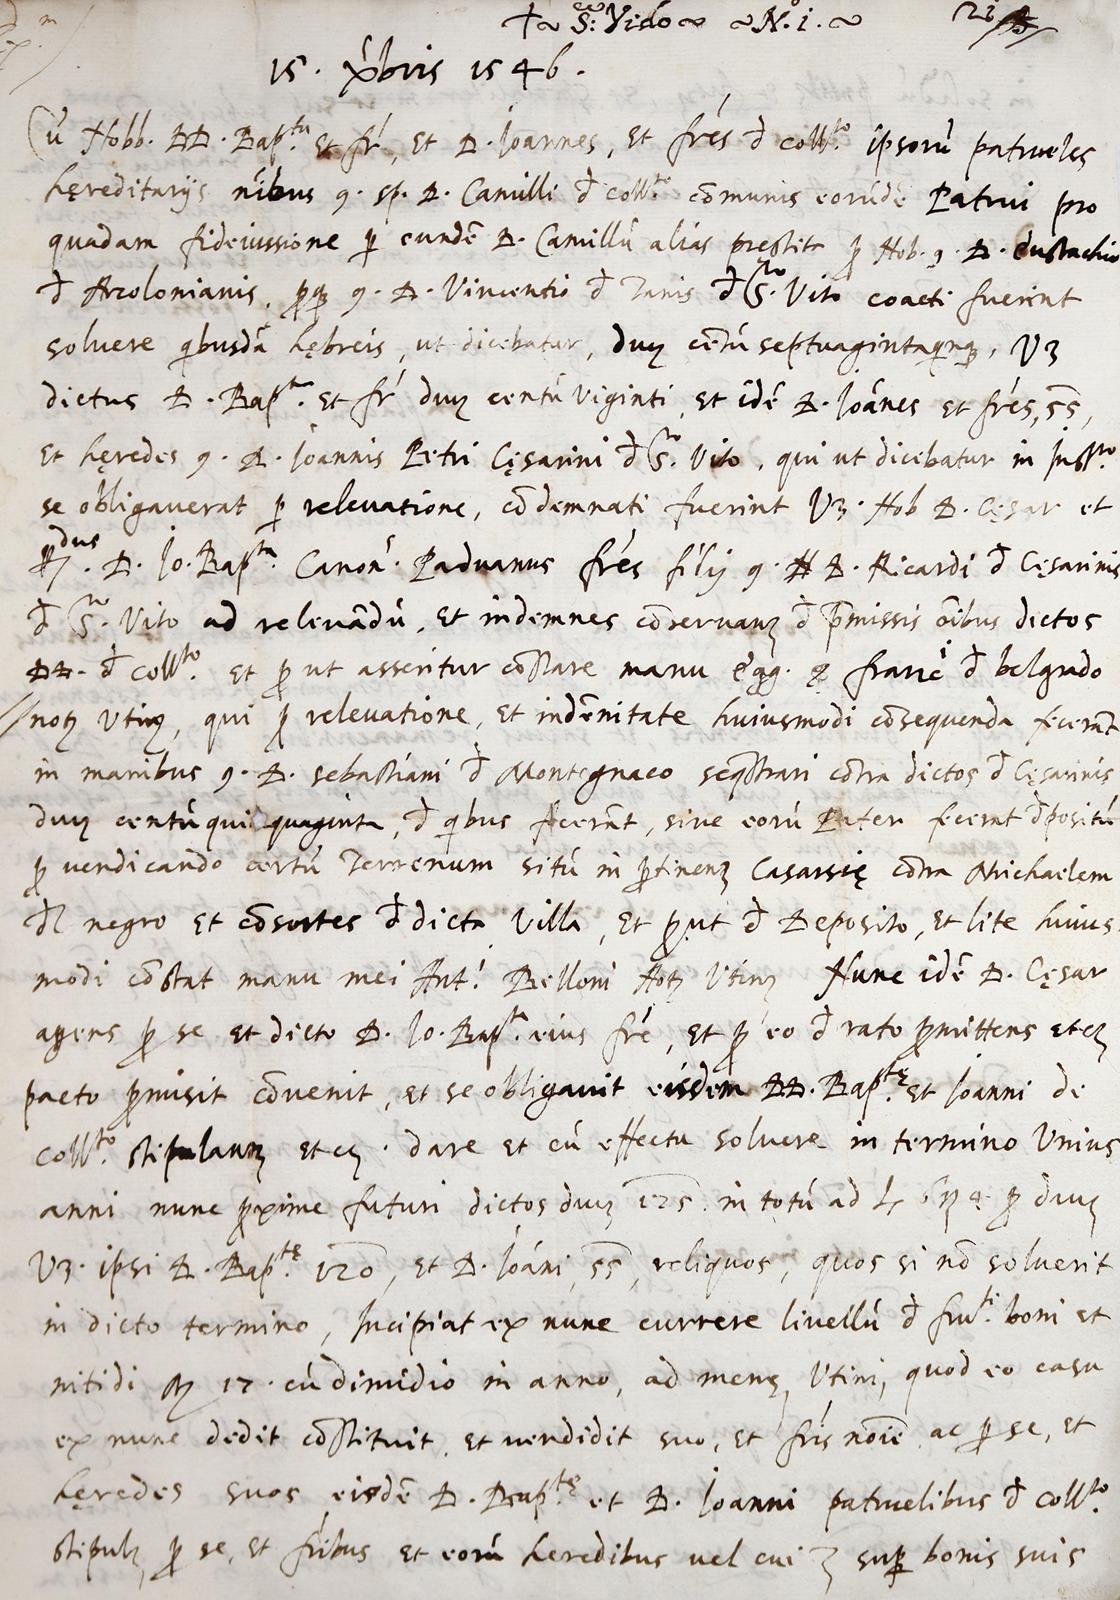 S. Vido N.º i.
15. xbris 1546.
Cu Nobb. DD. Bapta. et fr, et D. Joannes, et fres d collto. ipsoru patrueles
hereditarijs nibus q. sp. D. Camilli d collto. comunis eorude Patrui pro
quadam fideiussione p eunde D. Camillu alias prestita p Nob. q. D. Eustachio
d Arcolonianis, q. D. Vincentio d Tanis d Sto. Vito coacti fuerint
soluere qbusda hebreis, ut dicebatur, duc centu septuagintaqnq, Vz
dictus D. Bapta. et fr duc centu viginti, et ide D. Joanes et fres, 55,
et heredes q. D. Joannis Petri Cesarini d Sto. Vito, qui ut dicebatur in
se obligauerat p releuatione, codemnati fuerint Vz. Nob D. Cesar et
D. Jo. Bapta. Canon. Paduanus fres filij q. D. Ricardi d Cesarinis
d Sto. Vito ad releuadu, et indemnes coseruanz d pmissis oibus dictos
DD. d collto. et p ut asseritur costare manu egg. q franci d belgado
notz Utinz, qui p releuatione, et indenitate huiusmodi cosequenda fecerut
in manibus q. D. sebastiani d Montegnaco seqstrari cotra dictos d Cesarinis
duc centu quinquaginta, d qbus fecerut, siue eoru Pater fecerat dpositu
p uendicando certu Terrenum situ in ptinenz Casarsie cotra Michaelem
dl negro et cosortes d dicta Villa, et put d Deposito, et lite huius
modi costat manu mei Ant. Belloni Notz Utinz Nunc ide D. Cesar
agens p se et dicto D. Jo. Bapta. eius fre, et p eo d rato pmittens etcz
pacto pmisit couenit, et se obligauit eisdem DD. Bapte. et Joanni de
collto. stipulanz etcz. dare et cu effectu soluere in termino Unius
anni nunc pxime futuri dictos duc 175. in totu ad L 6 4 p duc
Vz. ipsi D. Bapte. 120, et D. Joani, 55, reliquos, quos si no soluerit
in dicto termino, Incipiat ex nunc currere liuellu d fruti. boni et
nitidi 17. cu dimidio in anno, ad menz Utini, quod eo casu
ex nunc dedit costituit, et uendidit suo, et fris noie ac p se, et
heredes suos eisde D. Bapte et D. Joanni patruelibus d collto.
stipulz p se, et fribus et eoru heredibus uel cui sup bonis suis